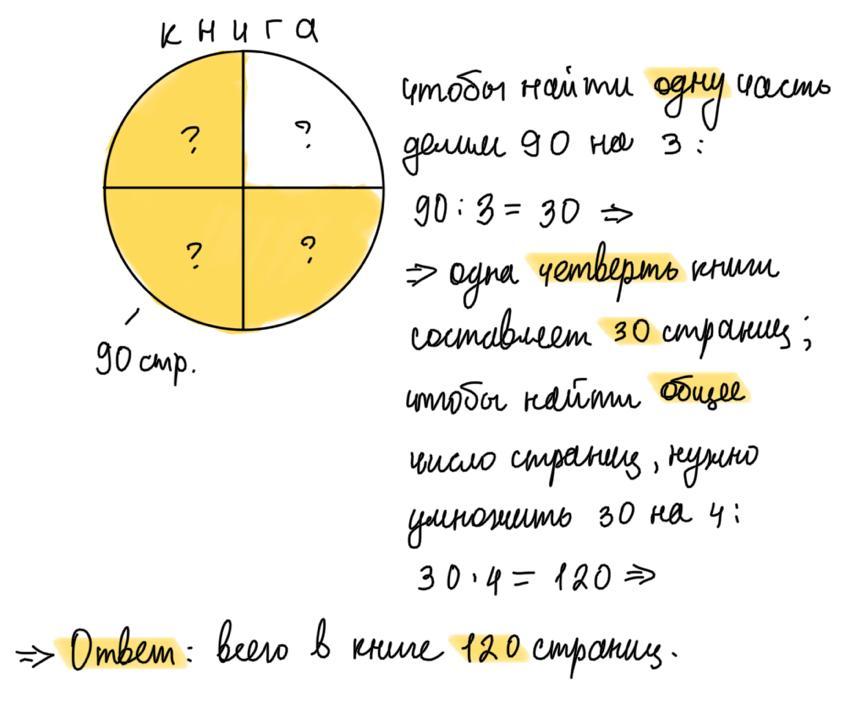 книга
?
?
?
?
90 стр.
чтобы найти одну часть
делим 90 на 3:
90:3 = 30 ⇒
⇒ одна четверть книги
составляет 30 страниц;
чтобы найти общее
число страниц, нужно
умножить 30 на 4:
30·4 = 120 ⇒
⇒ Ответ: всего в книге 120 страниц.